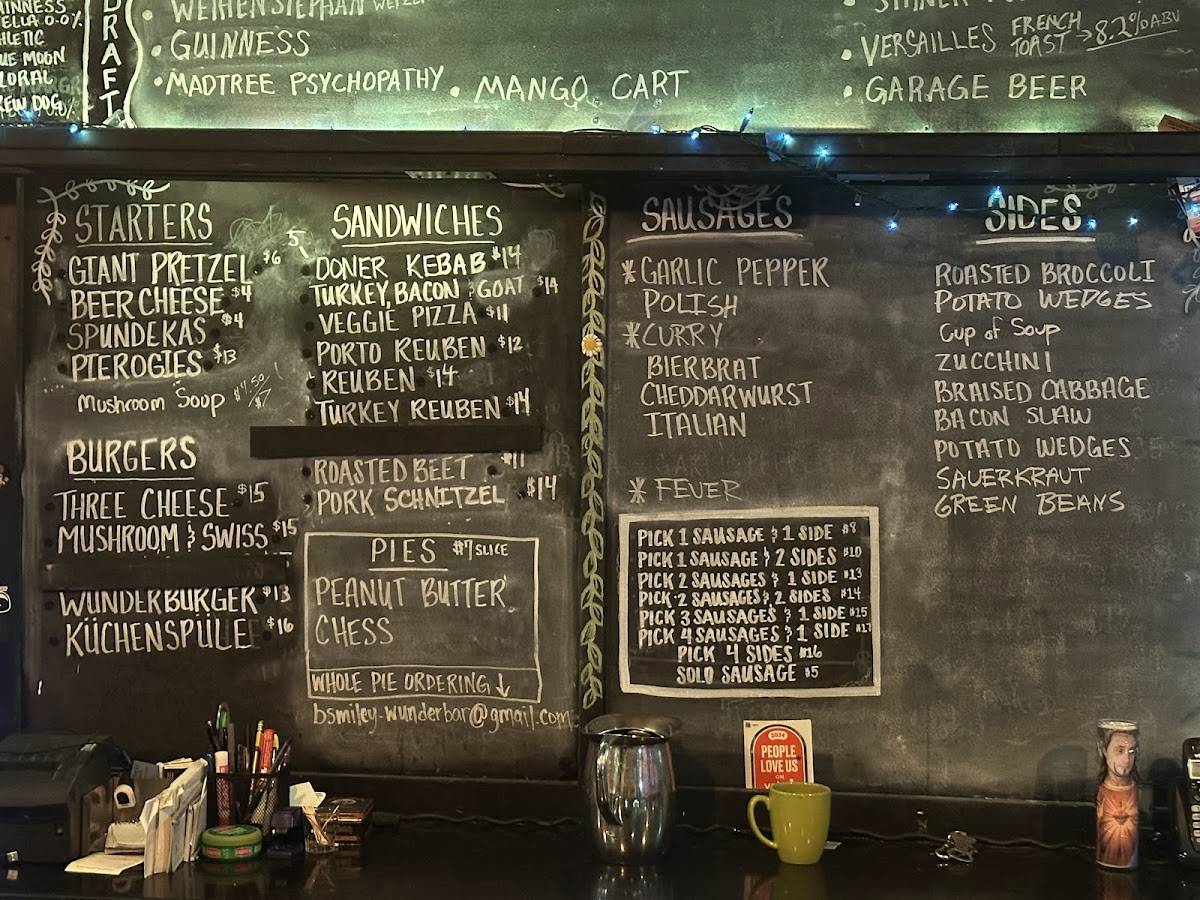 INNESS
ELLA 0.0%
HLETIC
UE MOON
LORAL
REW DOG
DRAFT
• WEIHENSTEPHAN
• GUINNESS
• MADTREE PSYCHOPATHY • MANGO CART
• VERSAILLES FRENCH TOAST → 8.2% ABV
• GARAGE BEER
STARTERS
GIANT PRETZEL $6
BEER CHEESE $4
SPUNDEKAS $4
PIEROGIES $13
MUSHROOM SOUP
BURGERS
THREE CHEESE $15
MUSHROOM & SWISS $15
WUNDERBURGER $13
KÜCHENSPÜLE $16
SANDWICHES
DONER KEBAB $14
TURKEY, BACON & GOAT $14
VEGGIE PIZZA $11
PORTO REUBEN $12
REUBEN $14
TURKEY REUBEN $14
ROASTED BEET $11
PORK SCHNITZEL $14
PIES $7 SLICE
PEANUT BUTTER
CHESS
WHOLE PIE ORDERING ↓
bsmiley.wunderbar@gmail.com
SAUSAGES
* GARLIC PEPPER
POLISH
* CURRY
BIERBRAT
CHEDDARWURST
ITALIAN
* FEUER
PICK 1 SAUSAGE & 1 SIDE $8
PICK 1 SAUSAGE & 2 SIDES $10
PICK 2 SAUSAGES & 1 SIDE $13
PICK 2 SAUSAGES & 2 SIDES $14
PICK 3 SAUSAGES & 1 SIDE $15
PICK 4 SAUSAGES & 1 SIDE $17
PICK 4 SIDES $16
SOLO SAUSAGE $5
SIDES
ROASTED BROCCOLI
POTATO WEDGES
Cup of Soup
ZUCCHINI
BRAISED CABBAGE
BACON SLAW
POTATO WEDGES
SAUERKRAUT
GREEN BEANS
PEOPLE
LOVE US
ON